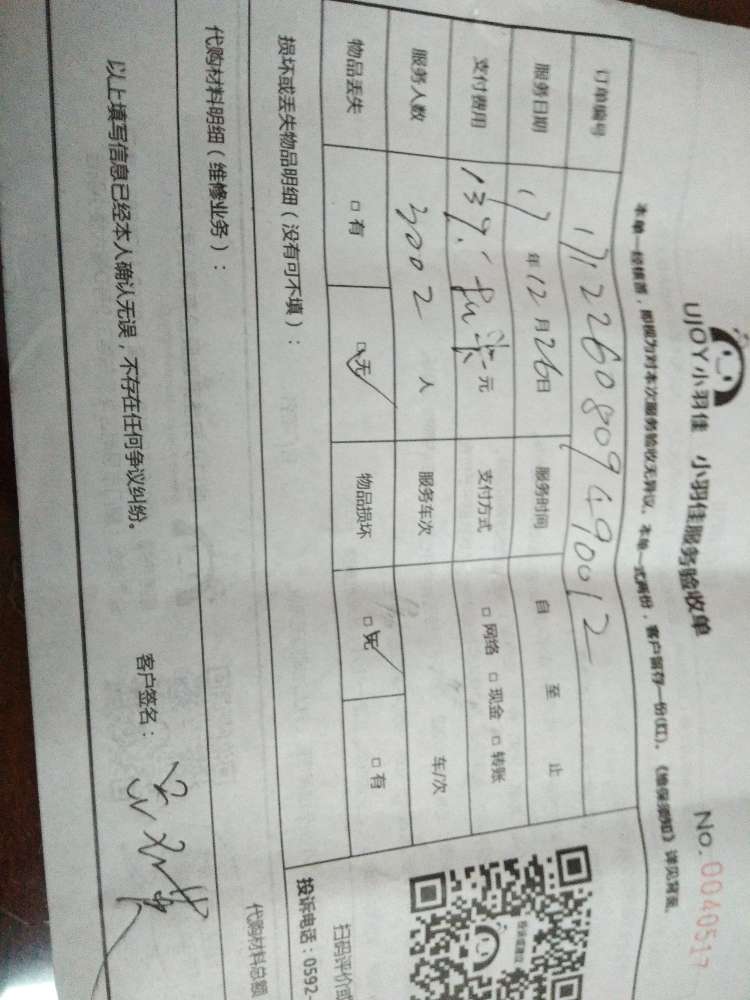 UJOY小羽佳 小羽佳服务验收单 No. 00405517
本单一经核签，即视为对本次服务验收无异议、本单一式两份，客户留存一份(红)。《维保须知》详见背面。
订单编号
服务日期 17年12月26日 服务时间 自 至 止
支付费用 元 支付方式 □ 网络 □ 现金 □ 转账
服务人数 3002 人 服务车次 车/次
物品丢失 □ 有 □ 无 物品损坏 □ 无 □ 有
损坏或丢失物品明细（没有可不填）：
代购材料明细（维修业务）：
代购材料总额
以上填写信息已经本人确认无误，不存在任何争议纠纷。 客户签名：
扫码评价或
投诉电话：0592-